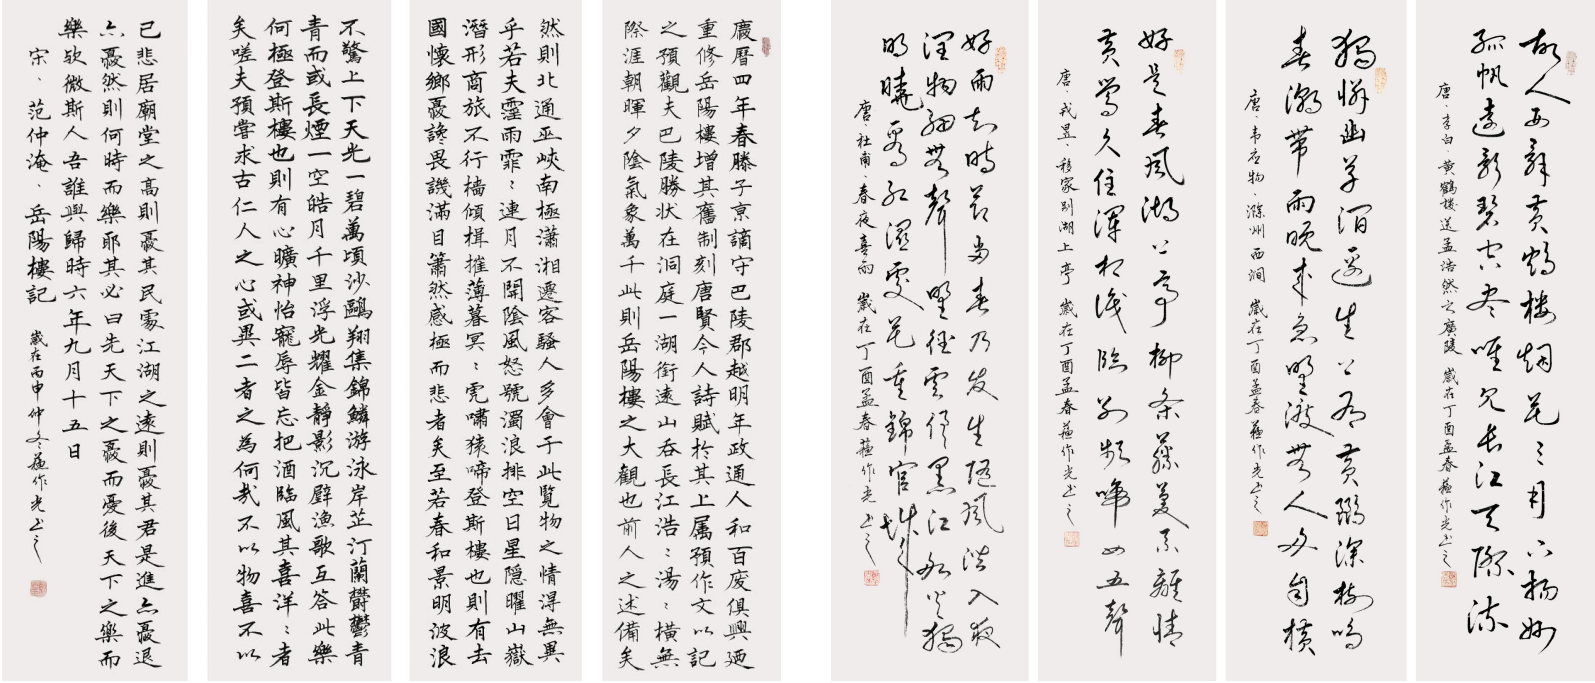 故人西辞黄鹤楼烟花三月下揚州
孤帆遠影碧空盡唯見長江天際流
唐·李白·黄鶴樓送孟浩然之廣陵 歲在丁酉孟春蘇作光书之
獨憐幽草澗邊生上有黄鸝深樹鳴
春潮帶雨晚來急野渡無人舟自横
唐·韦应物·滁州西澗 歲在丁酉孟春蘇作光书之
好是春風湖上亭柳条藤蔓系離情
黄鶯久住渾相識臨別頻啼四五聲
唐·戎昱·移家别湖上亭 歲在丁酉孟春蘇作光书之
好雨知時節當春乃发生随風潜入夜
潤物細無聲野徑雲俱黑江船火獨
明曉看红濕處花重錦官城
唐·杜甫·春夜喜雨 歲在丁酉孟春蘇作光书之
慶曆四年春滕子京謫守巴陵郡越明年政通人和百废俱興廼
重修岳陽樓增其舊制刻唐賢今人詩賦於其上属預作文以記
之預觀夫巴陵勝状在洞庭一湖銜遠山吞長江浩：湯：横無
際涯朝暉夕陰氣象萬千此則岳陽樓之大觀也前人之述備矣
然則北通巫峽南極瀟湘遷客騷人多會于此覽物之情得無異
乎若夫霪雨霏：連月不開陰風怒號濁浪排空日星隱曜山嶽
潛形商旅不行檣傾楫摧薄暮冥：虎嘯猿啼登斯樓也則有去
國懷鄉憂讒畏譏滿目簫然感極而悲者矣至若春和景明波浪
不驚上下天光一碧萬頃沙鷗翔集錦鱗游泳岸芷汀蘭欝鬱青
青而或長煙一空皓月千里浮光耀金靜影沉壁漁歌互答此樂
何極登斯樓也則有心曠神怡寵辱皆忘把酒臨風其喜洋：者
矣嗟夫預嘗求古仁人之心或異二者之為何哉不以物喜不以
己悲居廟堂之高則憂其民處江湖之遠則憂其君是進亦憂退
亦憂然則何時而樂耶其必曰先天下之憂而憂後天下之樂而
樂欤微斯人吾誰與歸時六年九月十五日
宋·范仲淹·岳陽樓記 歲在丙申仲冬蘇作光书之